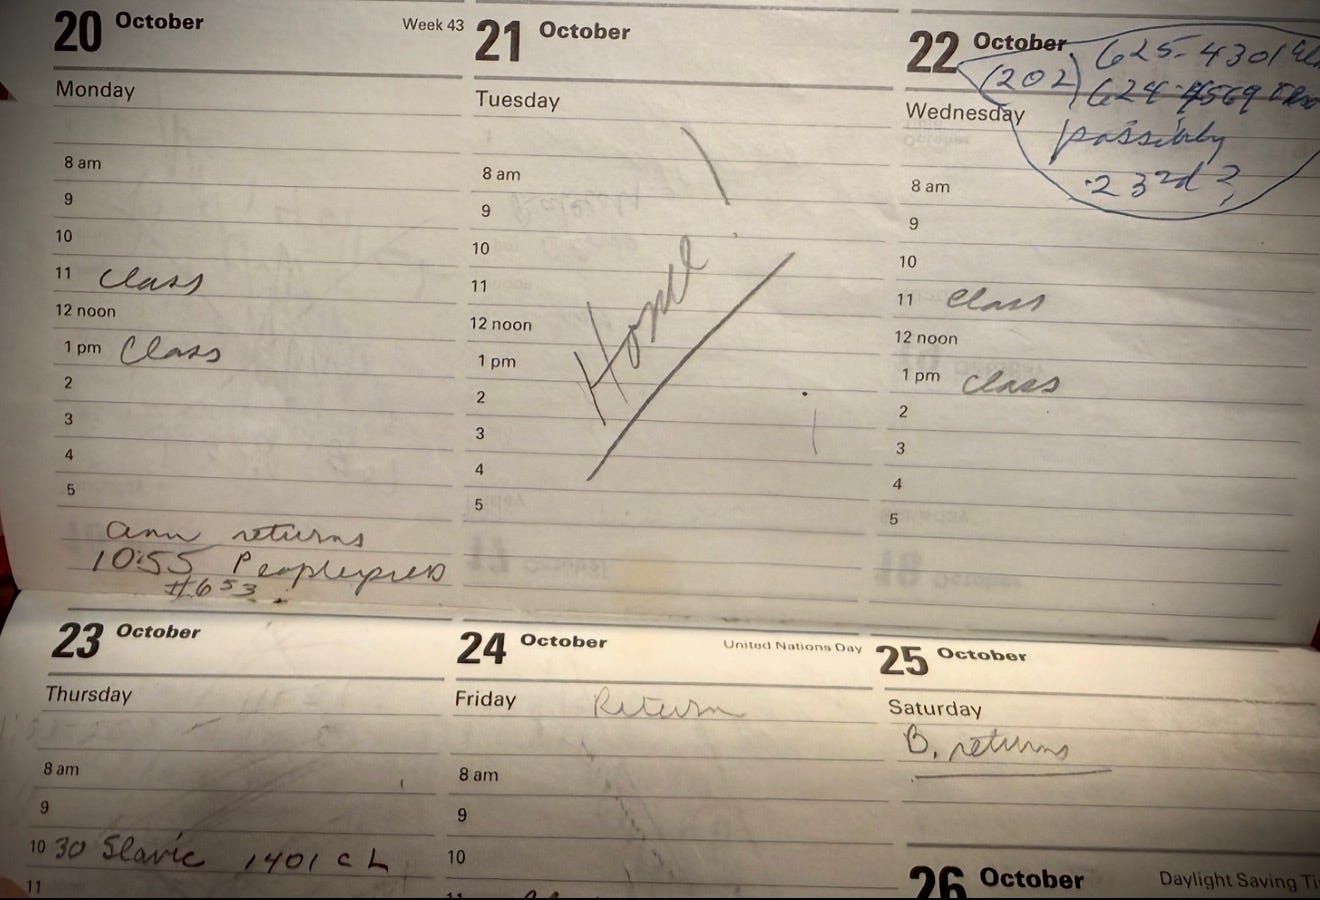 20 October Week 43
Monday
8 am
9
10
11 Class
12 noon
1 pm Class
2
3
4
5
Ann returns
10:55 Peoplexpress
#653
21 October
Tuesday
8 am
9
10
11
12 noon
1 pm
2
3
4
5
Home
22 October
625-4301
(202) 624-4569
possibly
23rd?
Wednesday
8 am
9
10
11 Class
12 noon
1 pm Class
2
3
4
5
23 October
Thursday
8 am
9
10 30 Slavic 1401 CL
11
24 October United Nations Day
Friday Return
8 am
9
10
11
25 October
Saturday
B. returns
26 October Daylight Saving